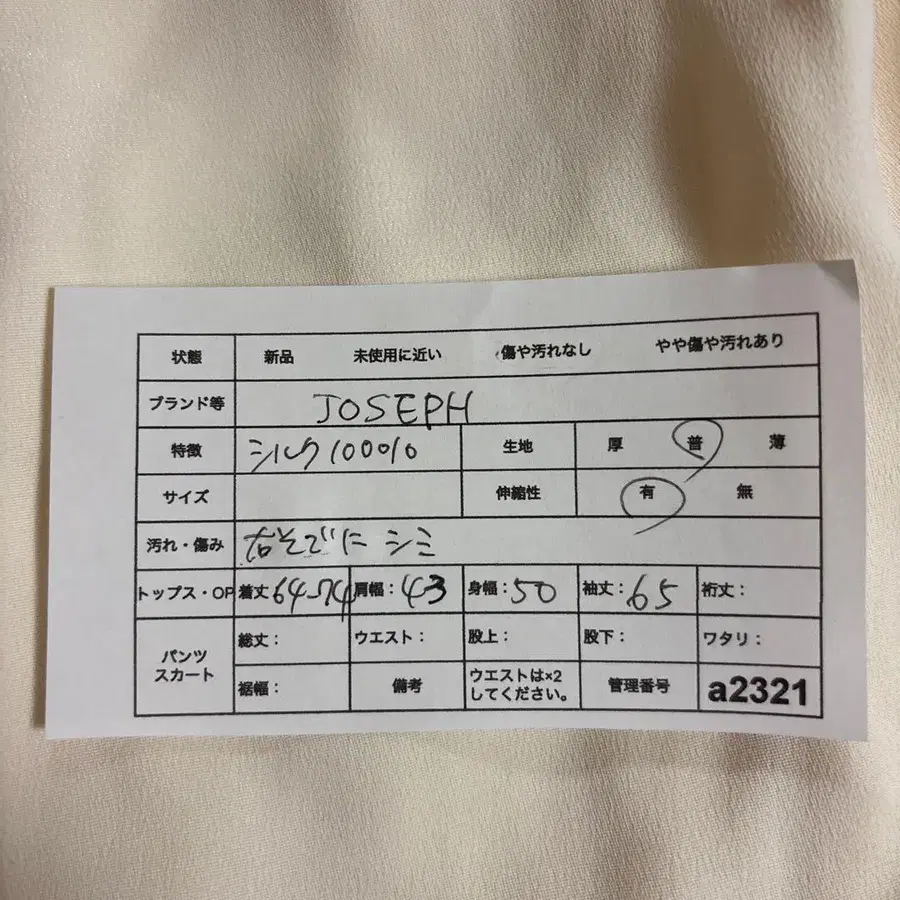 状態 新品 未使用に近い 傷や汚れなし やや傷や汚れあり
ブランド等 JOSEPH
特徴 シルク100% 生地 厚 普 薄
サイズ 伸縮性 有 無
汚れ・傷み 右そでに シミ
トップス・OP 着丈64-74 肩幅:43 身幅:50 袖丈:65 裄丈:
パンツ スカート 総丈: ウエスト: 股上: 股下: ワタリ:
裾幅: 備考 ウエストは×2してください。 管理番号 a2321